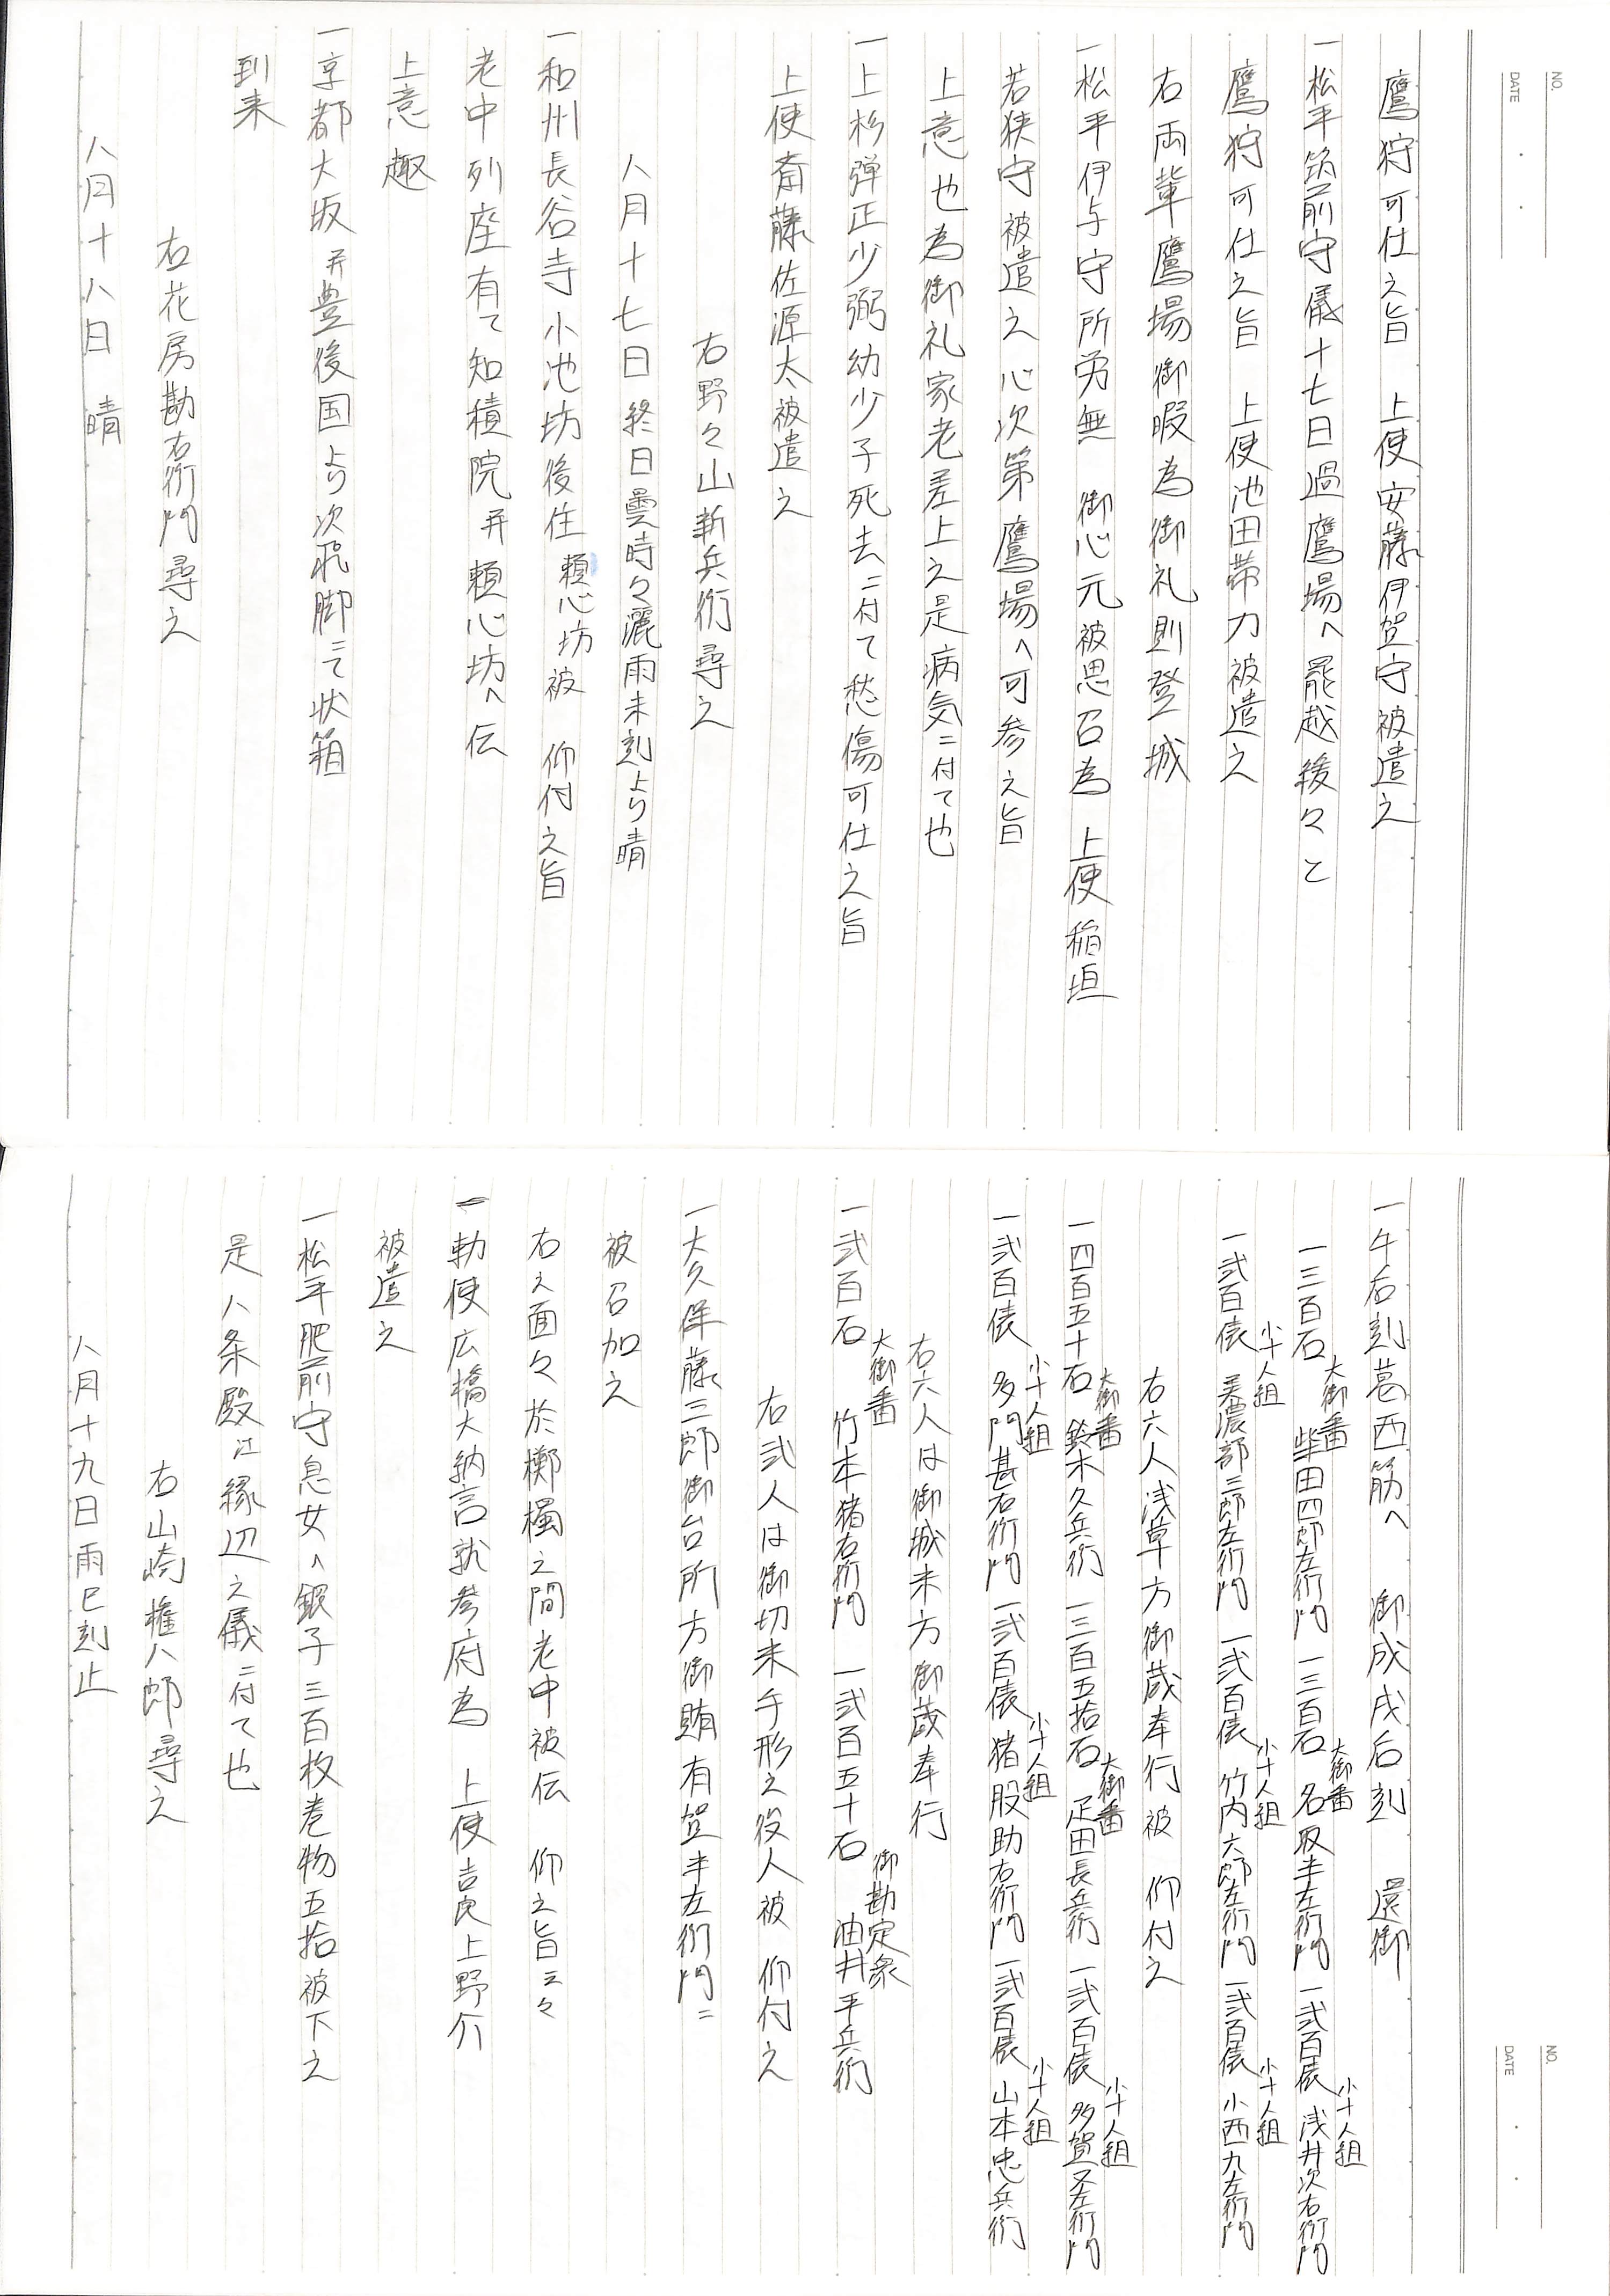 NO.
DATE
鷹狩可仕之旨　上使安藤伊賀守被遣之
一松平筑前守儀十七日過鷹場へ罷越後々と
鷹狩可仕之旨　上使池田帯刀被遣之
右両輩鷹場御暇為御礼則登城
一松平伊与守所労無　御心元被思召為　上使稲垣
若狭守被遣之心次第鷹場へ可参之旨
上意也為御礼家老差上之是病気ニ付て也
一上杉弾正少弼幼少子死去ニ付て愁傷可仕之旨
上使斎藤佐源太被遣之
右野々山新兵衛尋之
八月十七日終日曇時々灑雨未刻より晴
一和州長谷寺小池坊後住頼心坊被　仰付之旨
老中列座有て知積院并頼心坊へ伝
上意趣
一京都大坂并豊後国より次飛脚ニて状箱
到来
右花房勘右衛門尋之
八月十八日　晴
NO.
DATE
一午后刻葛西筋へ　御成戌后刻　還御
一三百石 大御番 柴田四郎左衛門 一三百石 大御番 名取半左衛門 一弐百俵 小十人組 浅井次右衛門
一弐百俵 小十人組 美濃部三郎左衛門 一弐百俵 小十人組 竹内六郎左衛門 一弐百俵 小十人組 小西九左衛門
右六人浅草方御蔵奉行被　仰付之
一四百五十石 大御番 鈴木久兵衛 一三百五拾石 大御番 疋田長兵衛 一弐百俵 小十人組 多賀又左衛門
一弐百俵 小十人組 多門甚右衛門 一弐百俵 小十人組 猪股助右衛門 一弐百俵 小十人組 山本忠兵衛
右六人は御城米方御蔵奉行
一弐百石 大御番 竹本猪右衛門 一弐百五十石 御勘定衆 油井平兵衛
右弐人は御切米手形之役人被　仰付之
一大久保藤三郎御台所方御賄有賀半左衛門ニ
被召加之
右之面々於檳榔之間老中被伝　仰之旨云々
一勅使広橋大納言就参府為　上使吉良上野介
被遣之
一松平肥前守息女へ銀子三百枚巻物五拾被下之
是八条殿江縁辺之儀ニ付て也
右山崎権八郎尋之
八月十九日雨巳刻止